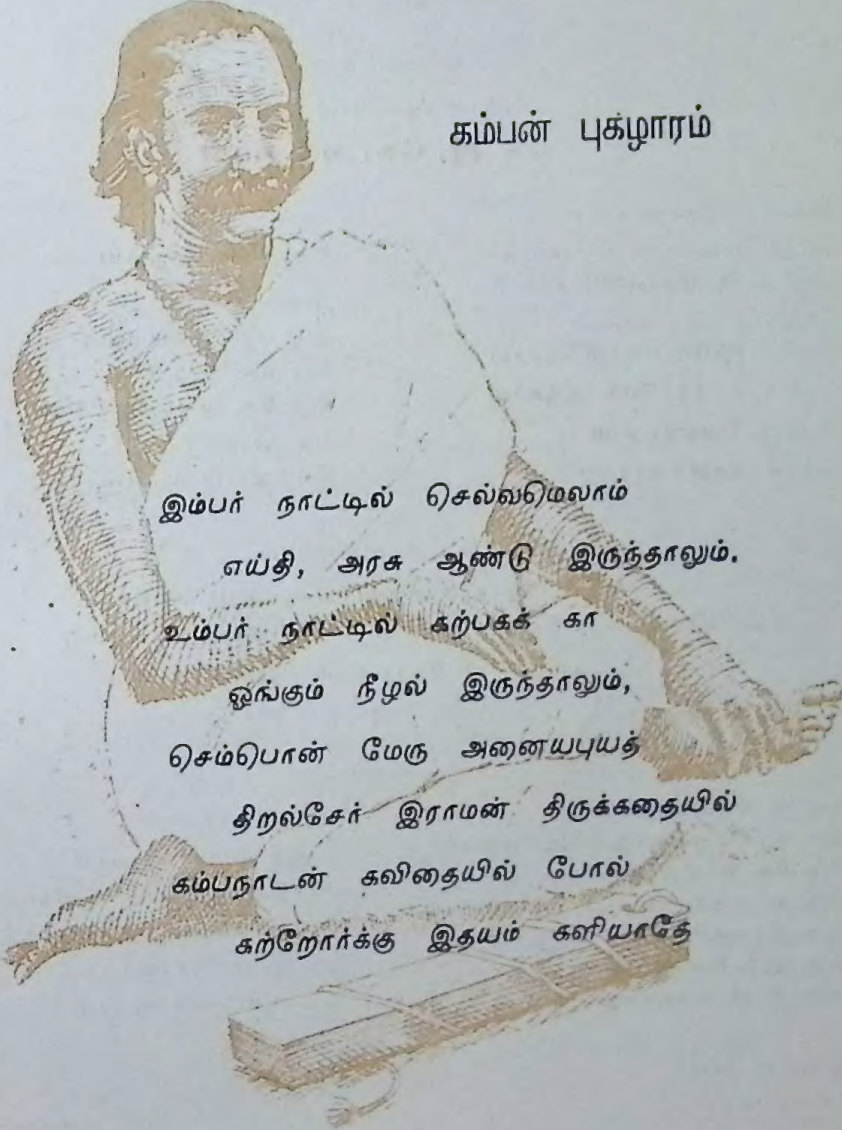 கம்பன் புகழாரம்
இம்பர் நாட்டில் செல்வமெலாம்
எய்தி, அரசு ஆண்டு இருந்தாலும்.
உம்பர் நாட்டில் கற்பகக் கா
ஓங்கும் நீழல் இருந்தாலும்,
செம்பொன் மேரு அனையபுயத்
திறல்சேர் இராமன் திருக்கதையில்
கம்பநாடன் கவிதையில் போல்
கற்றோர்க்கு இதயம் களியாதே